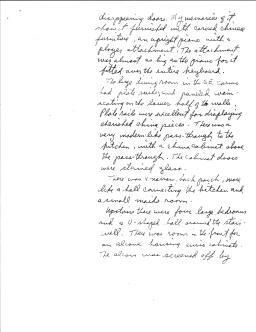 disappearing doors. My memories of it
show it furnished with carved chinese
furniture, an upright piano with a
player attachment. The attachment
was almost as big as the piano for it
fitted over the entire keyboard.
The large dining room in the S.E. corner
had plate rails and paneled wain-
scoting on the lower half of the walls.
Plate rails were excellent for displaying
cherished china pieces. There was a
very modern like pass-through to the
kitchen, with a china cabinet above
the pass-through. The cabinet doors
were stained glass.
There was a narrow back porch, more
like a hall connecting the kitchen and
a small maids room.
Upstairs there were four large bedrooms
and a U-shaped hall around the stair-
well. There was room in the front for
an alcove housing curio cabinets.
The alcove was screened off by